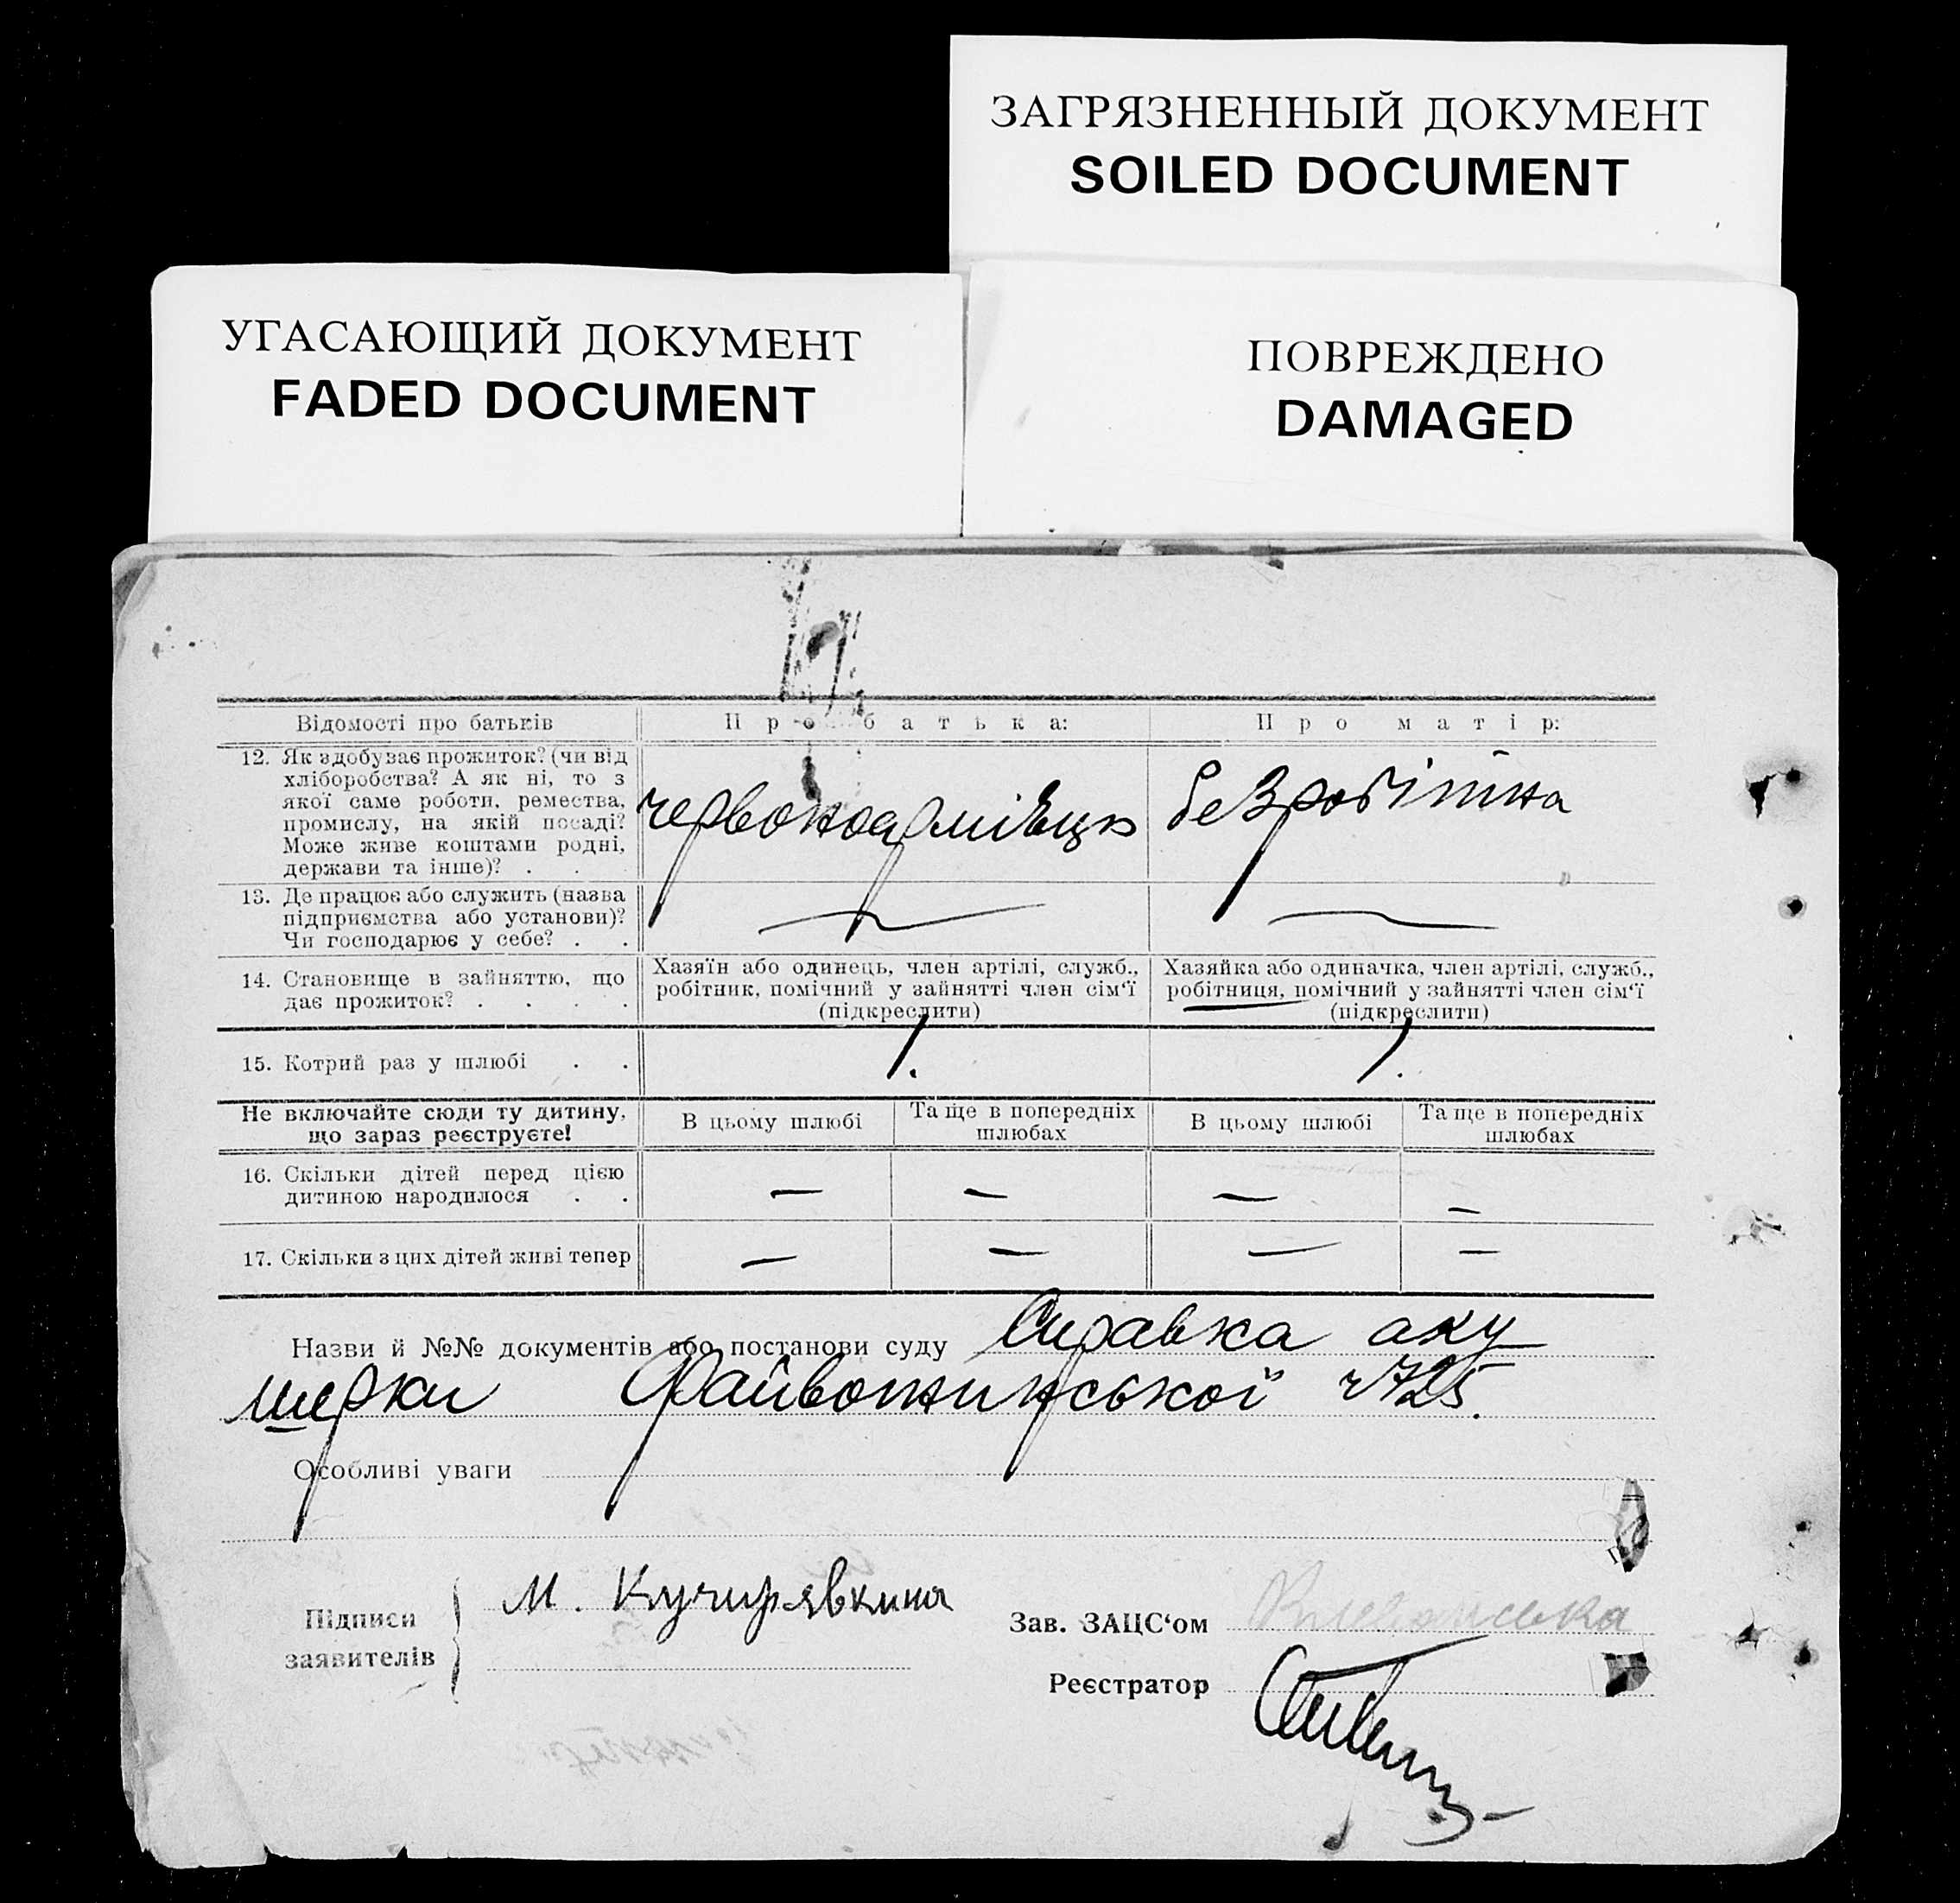 ЗАГРЯЗНЕННЫЙ ДОКУМЕНТ
SOILED DOCUMENT
УГАСАЮЩИЙ ДОКУМЕНТ
FADED DOCUMENT
ПОВРЕЖДЕНО
DAMAGED
Відомості про батьків
Про батька:
Про матір:
12. Як здобуває прожиток? (чи від
хліборобства? А як ні, то з
якої саме роботи, ремества,
промислу, на якій посаді?
Може живе коштами родні,
держави та інше)? . .
червоноармієць
безробітна
13. Де працює або служить (назва
підприємства або установи)?
Чи господарює у себе? . .
—
—
14. Становище в зайняттю, що
дає прожиток? . . . .
Хазяїн або одинець, член артілі, служб.,
робітник, помічний у зайнятті член сім‘ї
(підкреслити)
Хазяйка або одиначка, член артілі, служб.,
робітниця, помічний у зайнятті член сім‘ї
(підкреслити)
15. Котрий раз у шлюбі . .
1.
1.
Не включайте сюди ту дитину,
що зараз реєструєте!
В цьому шлюбі
Та ще в попередніх
шлюбах
В цьому шлюбі
Та ще в попередніх
шлюбах
16. Скільки дітей перед цією
дитиною народилося . .
— — — —
17. Скільки з цих дітей живі тепер
— — — —
Назви й №№ документів або постанови суду Справка аку
шерки ч725.
Особливі уваги
Підписи
заявителів
М.
Зав. ЗАЦС‘ом
Реєстратор